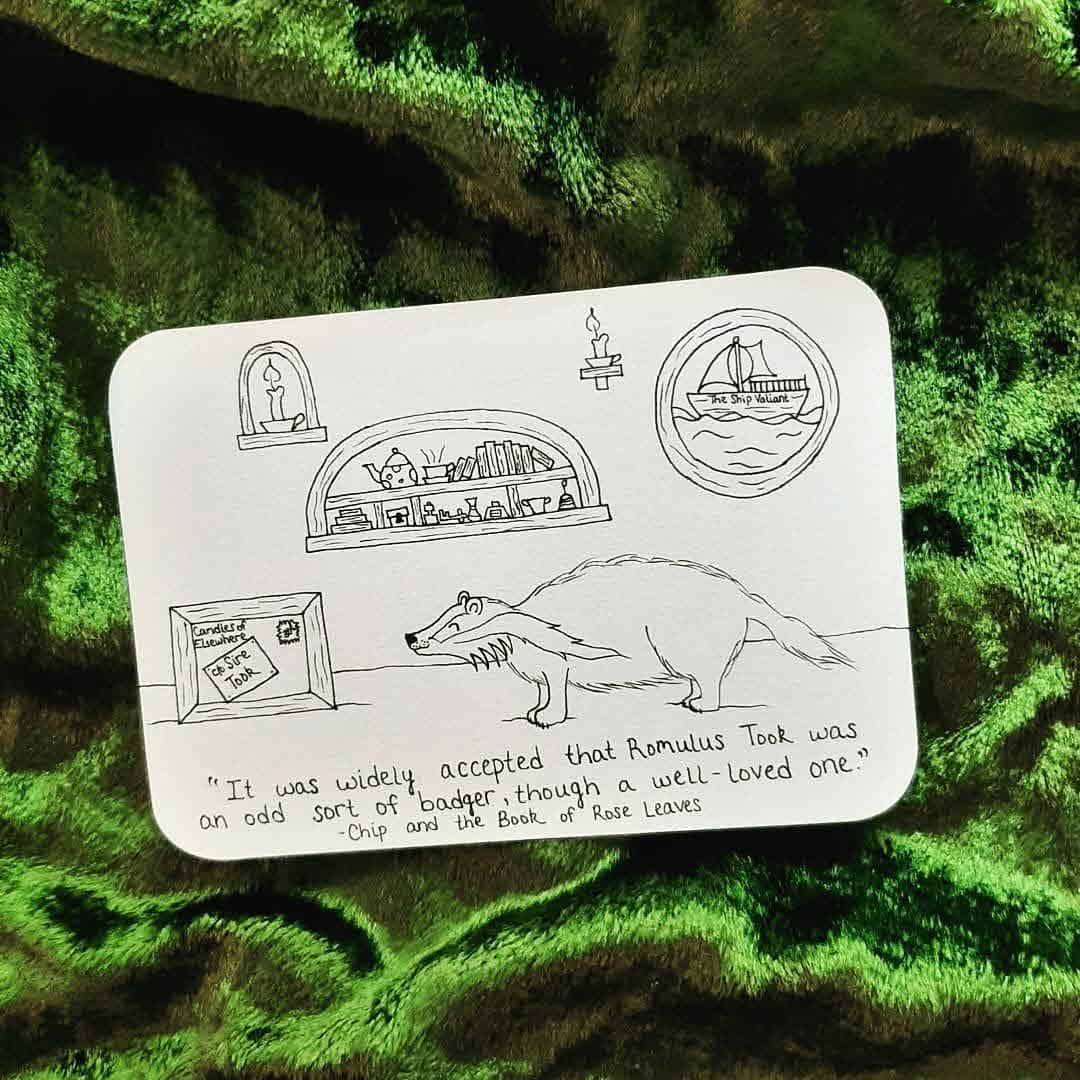 The Ship Valiant
Candles of
Elsewhere
c/o Sire
Took
"It was widely accepted that Romulus Took was
an odd sort of badger, though a well-loved one."
-Chip and the Book of Rose Leaves